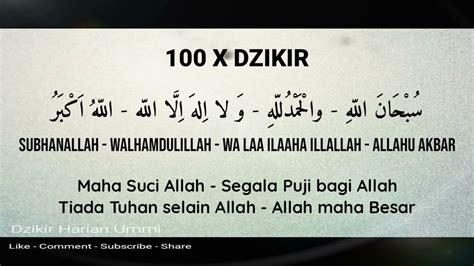 100 X DZIKIR
سُبْحَانَ اللّٰهِ - والْحَمْدُلِلّٰهِ - وَ لا اِلهَ اِلَّا اللّٰه - اللّٰهُ اَكْبَرُ
SUBHANALLAH - WALHAMDULILLAH - WA LAA ILAAHA ILLALLAH - ALLAHU AKBAR
Maha Suci Allah - Segala Puji bagi Allah
Tiada Tuhan selain Allah - Allah maha Besar
Dzikir Harian Ummi
Like - Comment - Subscribe - Share